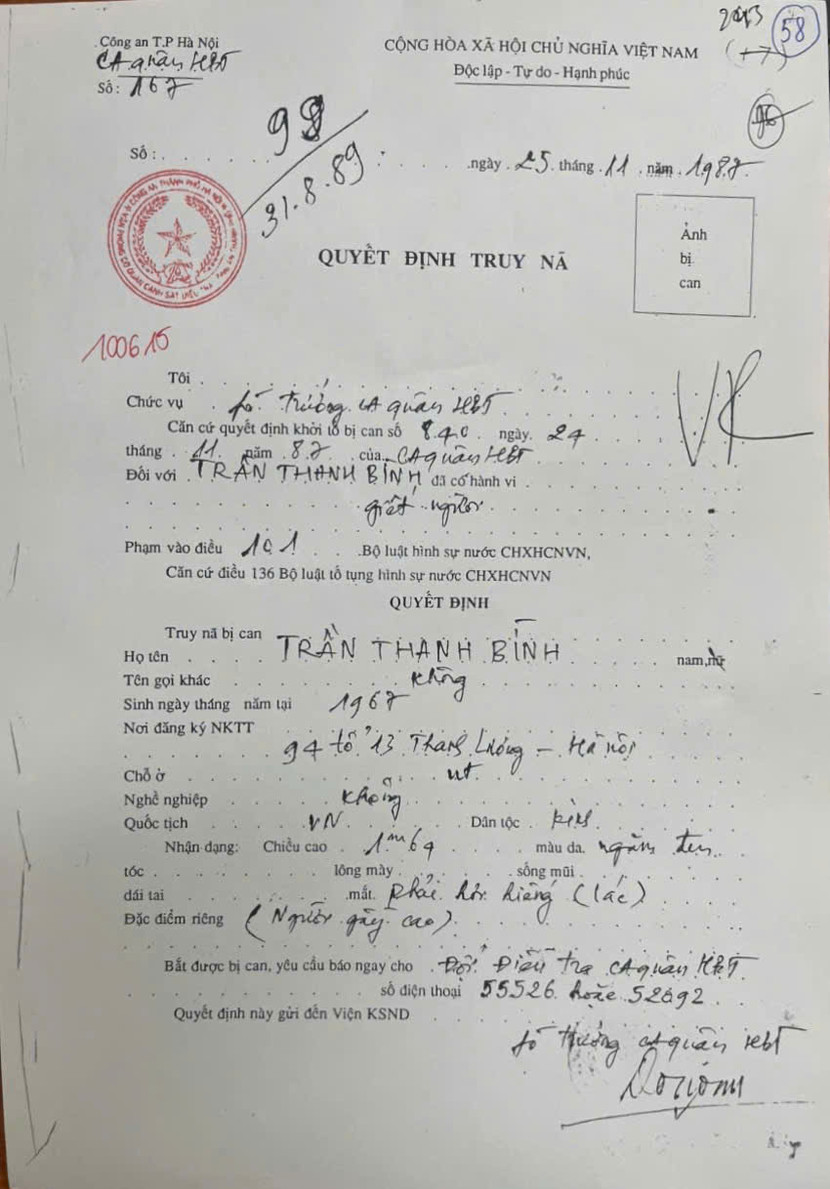 2013
58
Công an T.P Hà Nội
CỘNG HÒA XÃ HỘI CHỦ NGHĨA VIỆT NAM
(+7)
CA quận HBT
Độc lập - Tự do - Hạnh phúc
Số : 167
98
Số : . . . . . . . ngày . 25 . tháng . 11 . năm . 1987.
31.8.89
QUYẾT ĐỊNH TRUY NÃ
Ảnh
bị
can
100615
Tôi
VK
Chức vụ . fó Trưởng CA quận HBT
Căn cứ quyết định khởi tố bị can số 840 . ngày. 24
tháng . 11 . năm . 87 . của CA quận HBT
Đối với . TRẦN THANH BÍNH đã có hành vi
giết người
Phạm vào điều 101 . . .Bộ luật hình sự nước CHXHCNVN,
Căn cứ điều 136 Bộ luật tố tụng hình sự nước CHXHCNVN
QUYẾT ĐỊNH
Truy nã bị can
Họ tên TRẦN THANH BÍNH nam,nữ
Tên gọi khác không
Sinh ngày tháng năm tại 1967
Nơi đăng ký NKTT
94 tổ 13 Thanh Lương - Hà nội
Chỗ ở nt
Nghề nghiệp không
Quốc tịch VN Dân tộc kinh
Nhận dạng: Chiều cao 1m64 màu da. ngăm đen
tóc lông mày sống mũi
dái tai .mắt. phải hơi hiếng (lác)
Đặc điểm riêng (Người gầy cao)
Bắt được bị can, yêu cầu báo ngay cho Đội Điều tra CA quận HBT
số điện thoại 55526 hoặc 52692
Quyết định này gửi đến Viện KSND
fó trưởng CA quận HBT